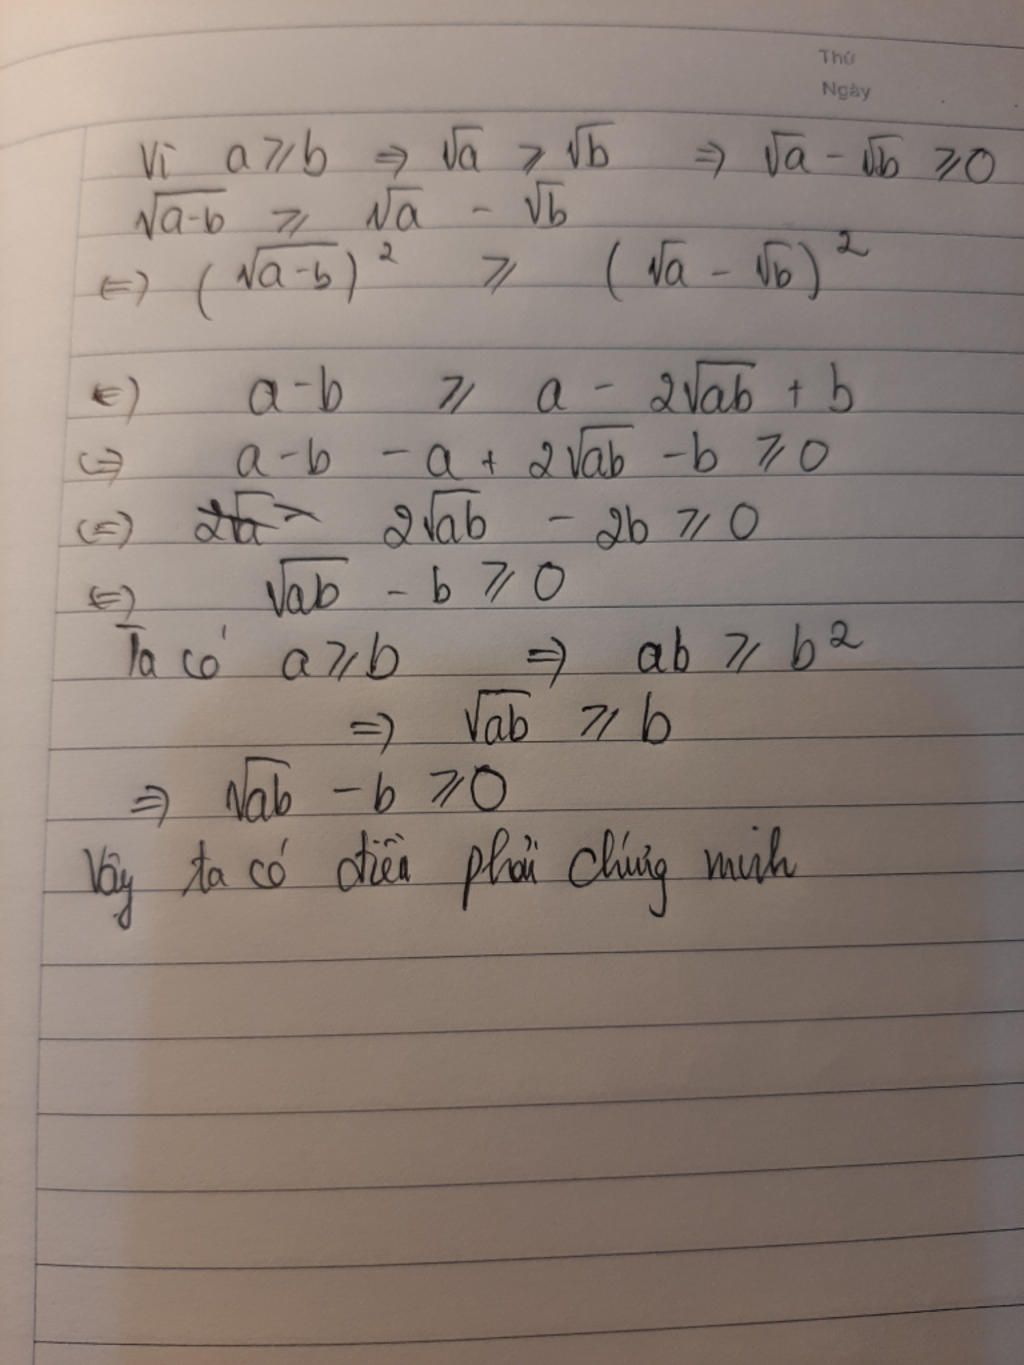 Thứ
Ngày
Vì a ≥ b ⇒ √a ≥ √b ⇒ √a - √b ≥ 0
√(a-b) ≥ √a - √b
⇔ (√(a-b))² ≥ (√a - √b)²
⇔ a - b ≥ a - 2√(ab) + b
⇔ a - b - a + 2√(ab) - b ≥ 0
⇔ 2√(ab) - 2b ≥ 0
⇔ √(ab) - b ≥ 0
Ta có a ≥ b ⇒ ab ≥ b²
⇒ √(ab) ≥ b
⇒ √(ab) - b ≥ 0
Vậy ta có điều phải chứng minh